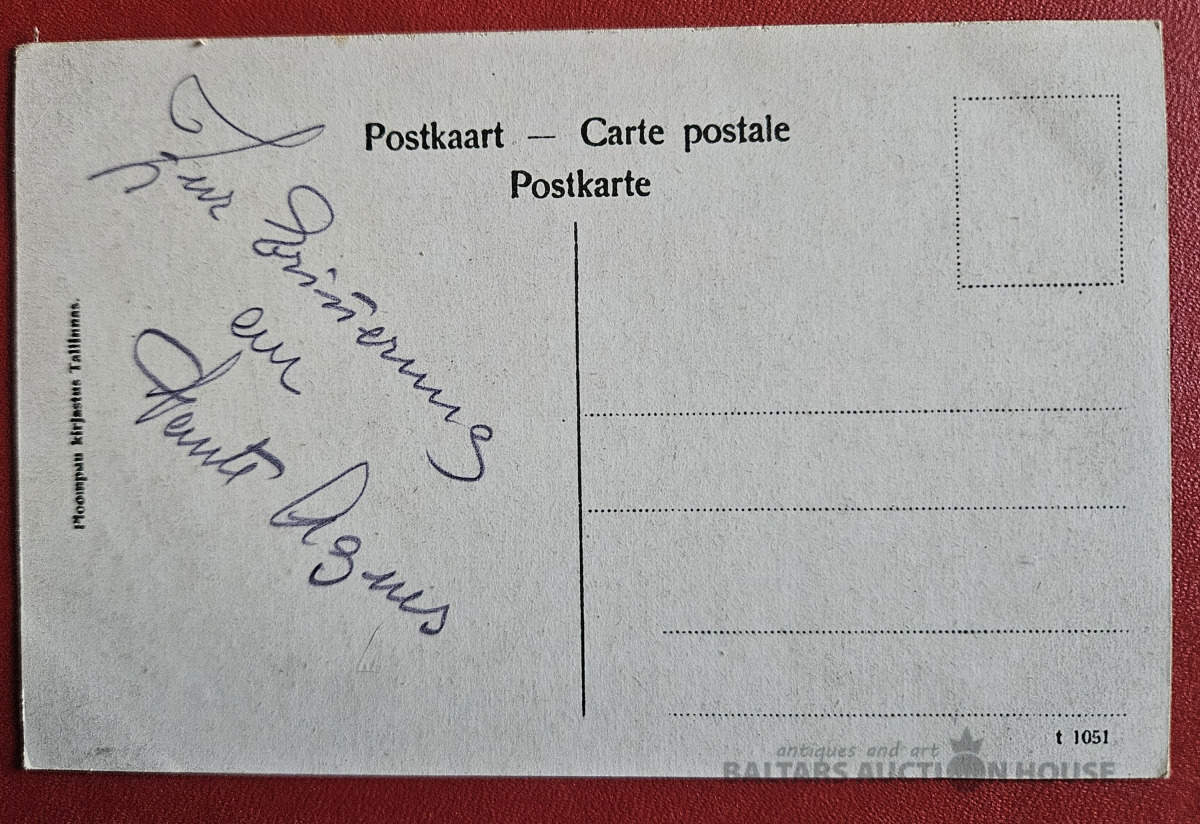 Postkaart — Carte postale
Postkarte
Zur
Erinnerung
an
Tante Agnes
Ploompuu kirjastus Tallinnas.
t 1051
antiques and art
BALTARS AUCTION HOUSE